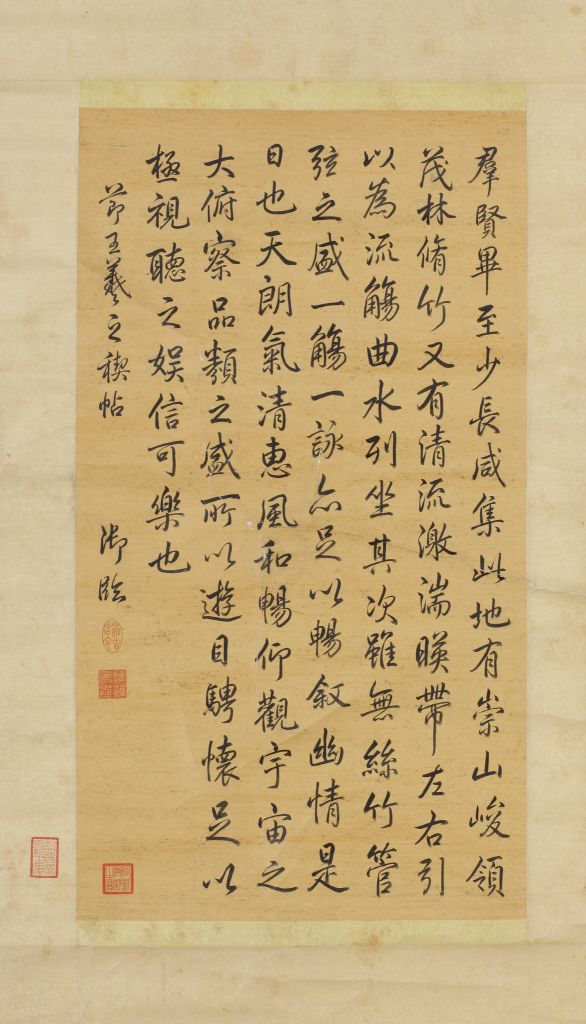 羣賢畢至少長咸集此地有崇山峻領
茂林脩竹又有清流激湍暎帶左右引
以為流觴曲水列坐其次雖無絲竹管
弦之盛一觴一詠亦足以暢叙幽情是
日也天朗氣清惠風和暢仰觀宇宙之
大俯察品類之盛所以遊目騁懷足以
極視聽之娱信可樂也
節王羲之禊帖
御臨